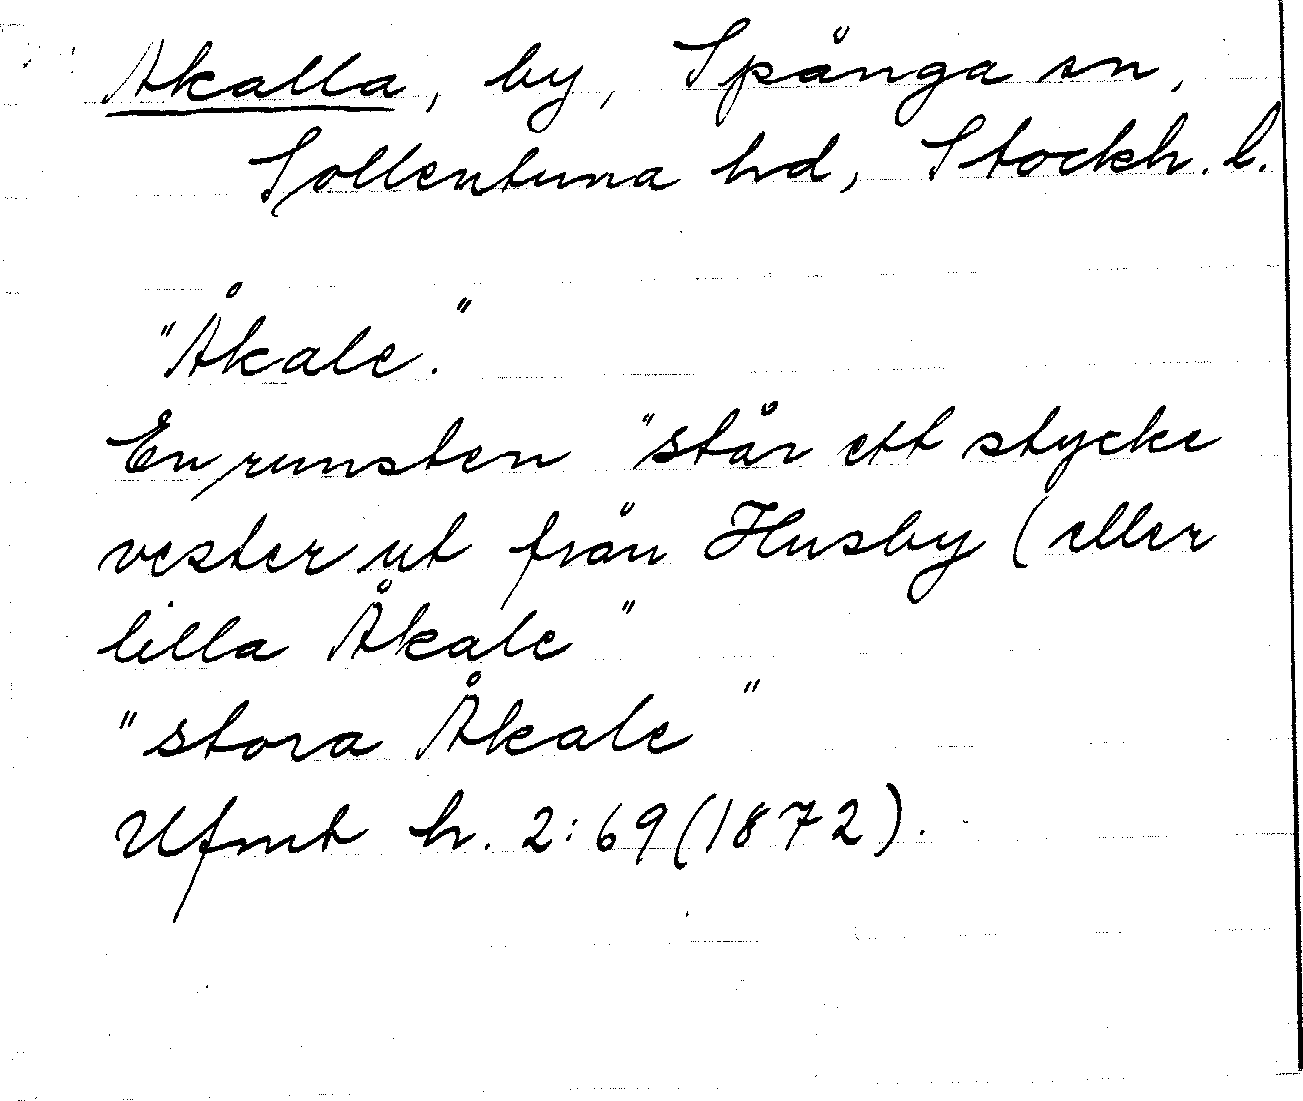 Akalla, by, Spånga sn,
Sollentuna hd, Stockh. l.
"Åkale."
En runsten "står ett stycke
vester ut från Husby (eller
lilla Åkale"
"stora Åkale"
Ufmt h. 2:69 (1872).